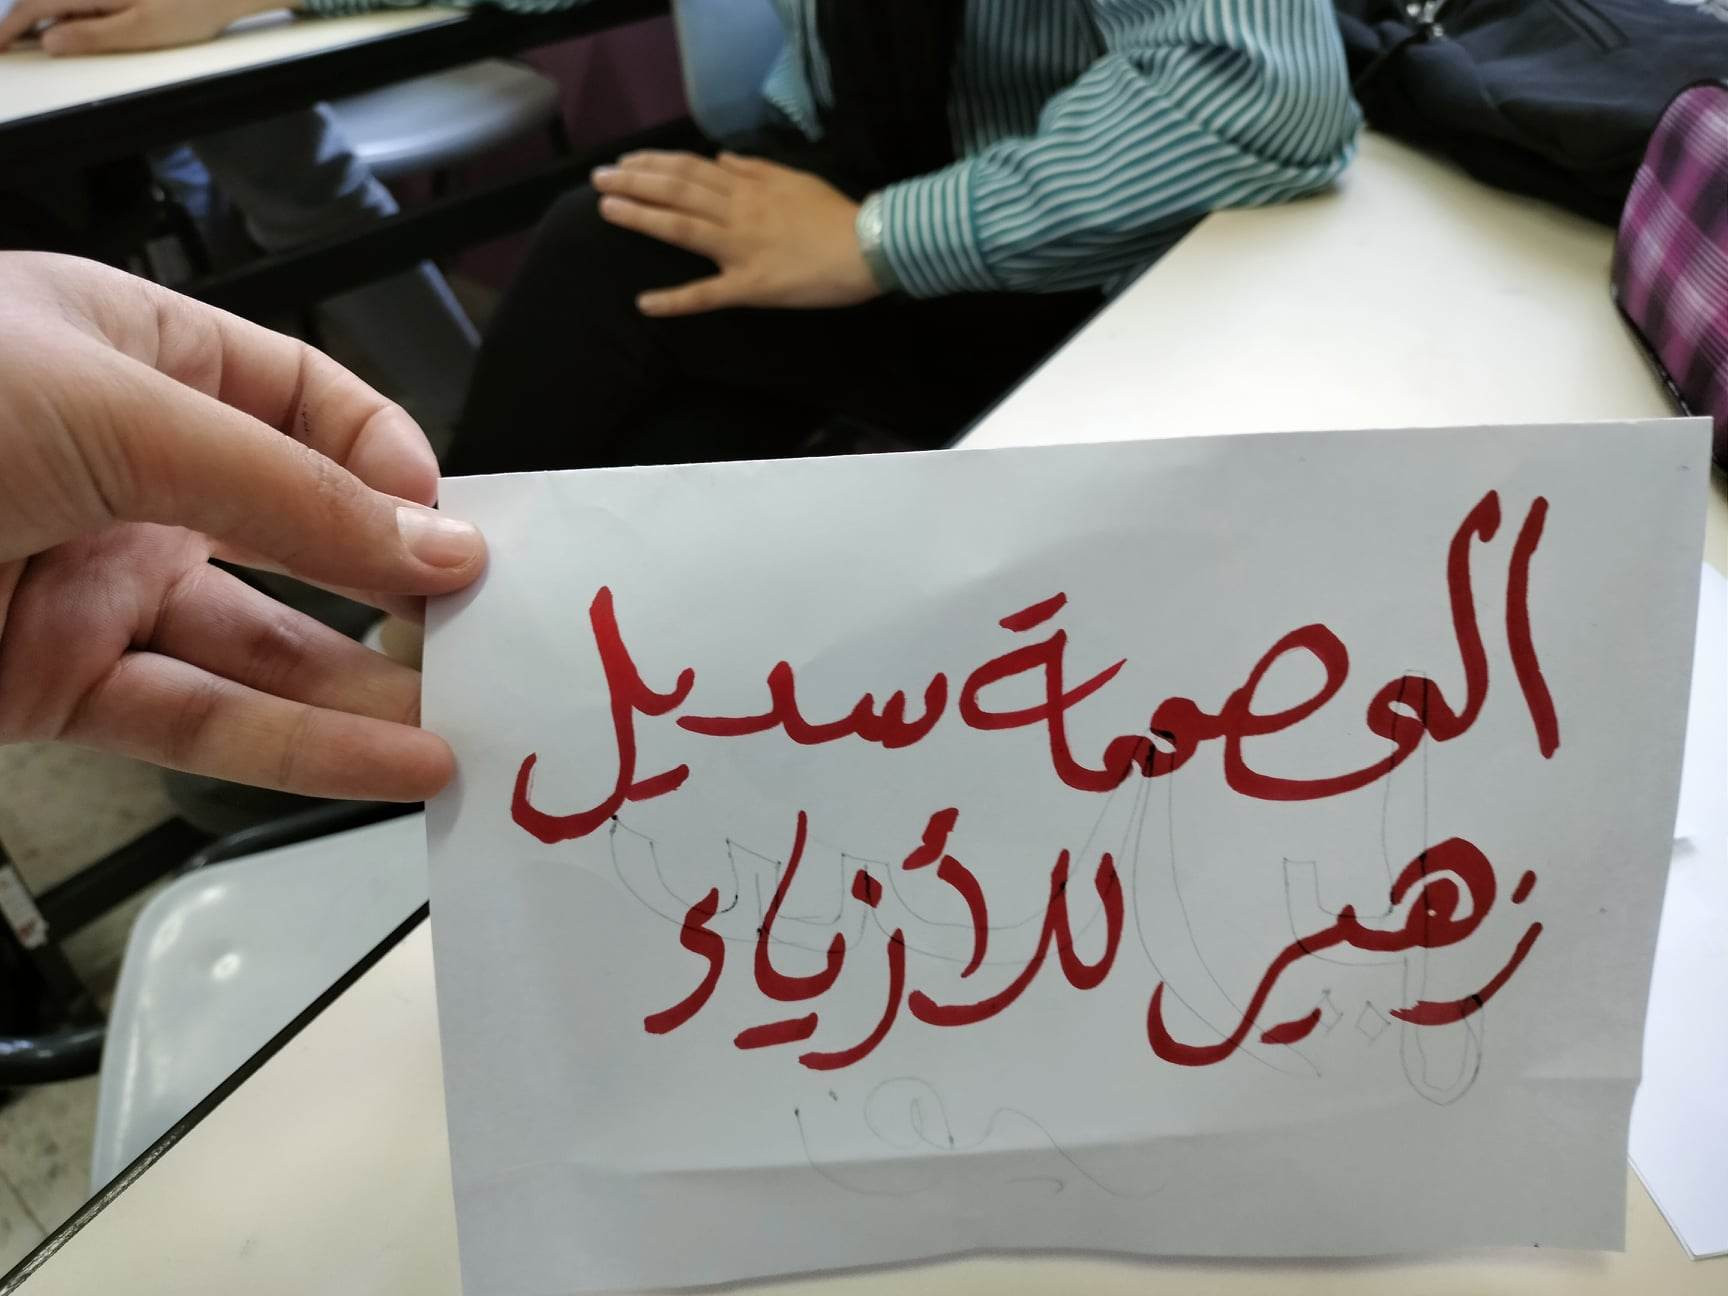 المصممة سديل
زهير للأزياء